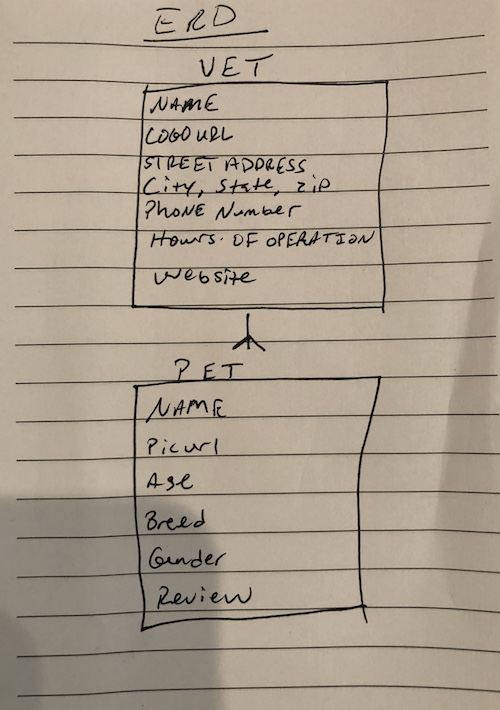 ERD
VET
NAME
LOGO URL
STREET ADDRESS
City, State, zip
PHONE Number
Hours. OF OPERATION
website
PET
NAME
Picurl
Age
Breed
Gender
Review